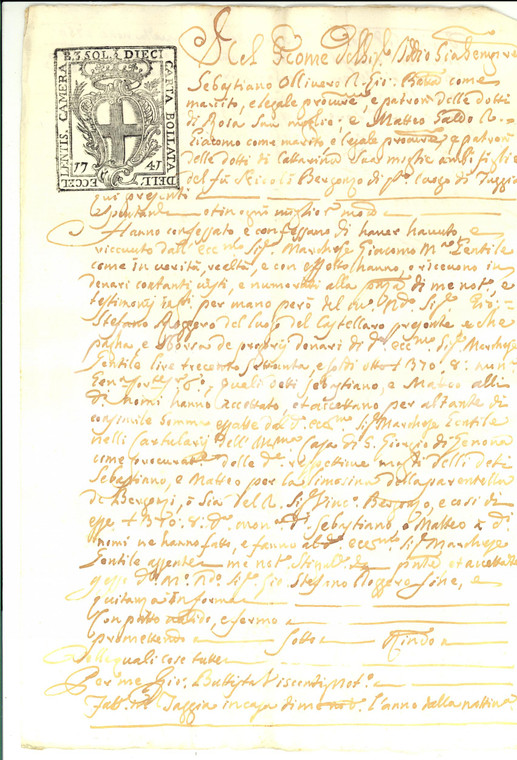 B. 3 SOL. 2 DIECI
CARTA BOLLATA
DELL'
ECCELLENTIS. CAMERA
1741
Nel Nome del Sig.
Sebastiano Ollivero q. Gio. Batta come
marito, e legale procur.e e patron delle dotti
di Rosa sua moglie: e Matteo Saldo q.
Giacomo come marito e legale procur.e e patron
delle dotti di Cattarina sua moglie ambi figlie
del fu Nicolò Bergonzo di q.to luogo di Taggia
qui presenti
Spontan. et in ogni miglior modo
Hanno confessato e confessano di haver havuto, e
riccevuto dall'ecc.mo Sig. Marchese Giacomo M.a Gentile
come in verità, realtà, e con effetto hanno, e ricevono in
denari contanti visti, e numerati alla pnza di me not.o, e
testimonij infti per mano però del m. Rdo. Sig. Gio:
Steffano Roggero del luogo del Castellaro presente e che
paga, e sborsa de proprij denari di d.o ecc.mo Sig. Marchese
Gentile lire trecento settanta, e soldi otto £ 370: 8: mon.
Gen.a quali detti Sebastiano, e Matteo alli
di nomi hanno accettato et accettano per altante di
consimile somma dal d. ecc.mo Sig. Marchese Gentile
nelli Cartularij dell' Casa di S. Giorgio di Genova
come procurat. delle d. respettive mogli delli detti
Sebastiano, e Matteo per la limosina della parentella
de Bergonzi, ò sia del q. Sig. Vinc. Bergonzo, e cosi di
esse £ 370: 8: d. mon. d. Sebastiano e Matteo a di
nomi ne hanno fatto, e fanno al d. ecc.mo Sig. Marchese
Gentile assente me not.o
d. M. Rdo. Sig. Gio: Steffano Roggero fine, e
quitanza in forma
Con patto valido, e fermo
promettendo sotto
Delle quali cose tutte
Per me Gio: Battista Visconti Not.o
Fatt. in Taggia in casa di me not. l'anno dalla nattiv.